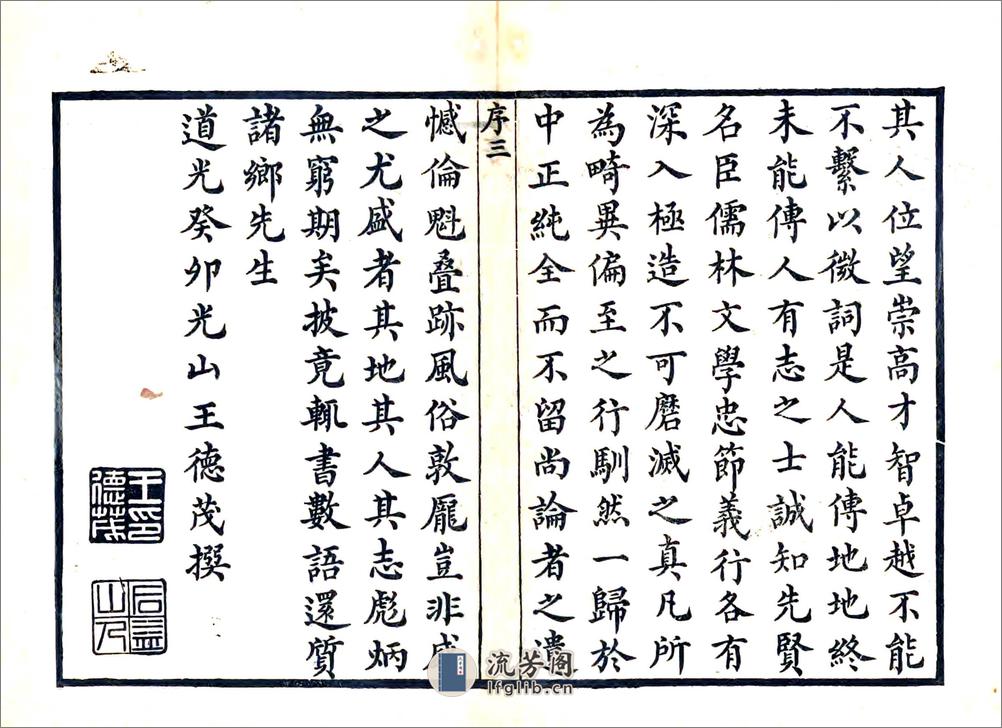 其人位望崇高才智卓越不能
不繫以微詞是人能傳地地終
未能傳人有志之士誠知先賢
名臣儒林文學忠節義行各有
深入極造不可磨滅之真凡所
為畸異偏至之行馴然一歸於
中正純全而不留尚論者之遺
序三
憾倫魁疊跡風俗敦龐豈非盛
之尤盛者其地其人其志彪炳
無窮期矣披竟輒書數語還質
諸鄉先生
道光癸卯光山王德茂撰
王印德茂
流芳阁
lfglib.cn